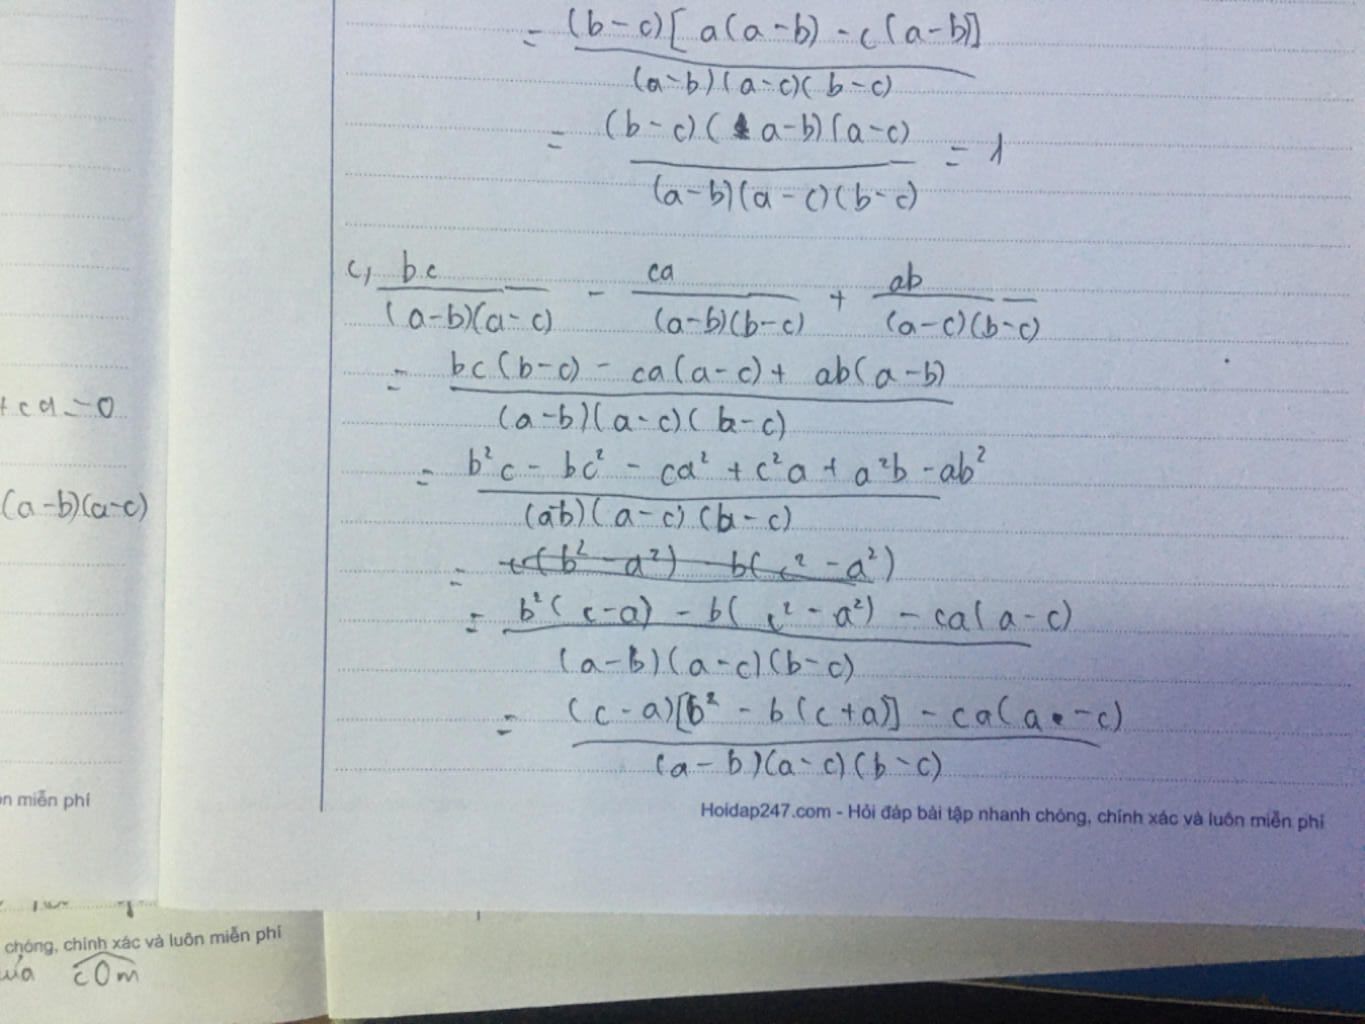 = (b-c)[a(a-b) - c(a-b)]
(a-b)(a-c)(b-c)
= (b-c)(a-b)(a-c) = 1
(a-b)(a-c)(b-c)
c, bc - ca + ab
(a-b)(a-c) (a-b)(b-c) (a-c)(b-c)
= bc(b-c) - ca(a-c) + ab(a-b)
(a-b)(a-c)(b-c)
+ca=0
= b²c - bc² - ca² + c²a + a²b - ab²
(a-b)(a-c)(b-c)
(a-b)(a-c)
= c(b² - a²) - b(c² - a²)
= b²(c-a) - b(c² - a²) - ca(a-c)
(a-b)(a-c)(b-c)
= (c-a)[b² - b(c+a)] - ca(a-c)
(a-b)(a-c)(b-c)
n miễn phí
Hoidap247.com - Hỏi đáp bài tập nhanh chóng, chính xác và luôn miễn phí
chóng, chính xác và luôn miễn phí